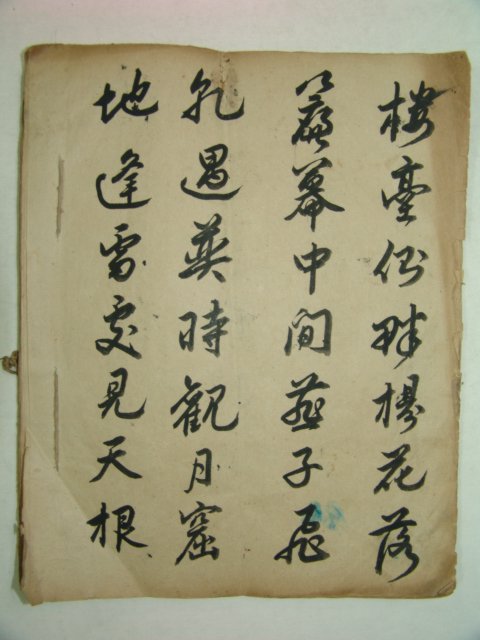 樓臺側畔楊花落
簾幕中間燕子飛
乾遇巽時觀月窟
地逢雷處見天根